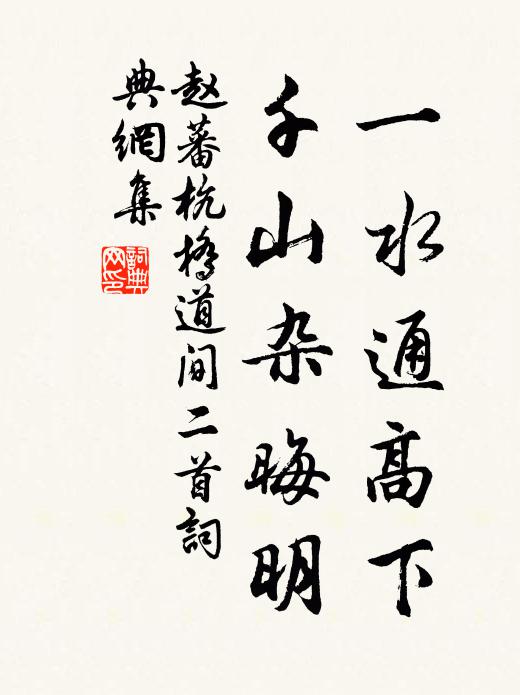 一水通高下
千山杂晦明
赵蕃杭桥道间二首詞
典網集
詞典
网印